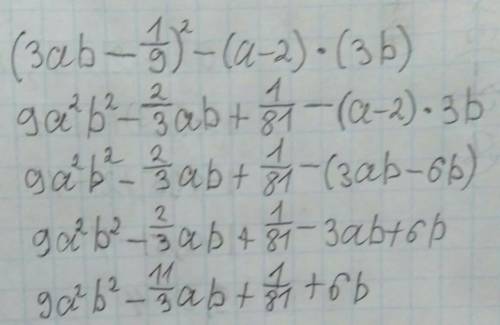 (3ab − 1/9)² − (a−2) · (3b)
9a²b² − 2/3 ab + 1/81 − (a−2) · 3b
9a²b² − 2/3 ab + 1/81 − (3ab − 6b)
9a²b² − 2/3 ab + 1/81 − 3ab + 6b
9a²b² − 11/3 ab + 1/81 + 6b